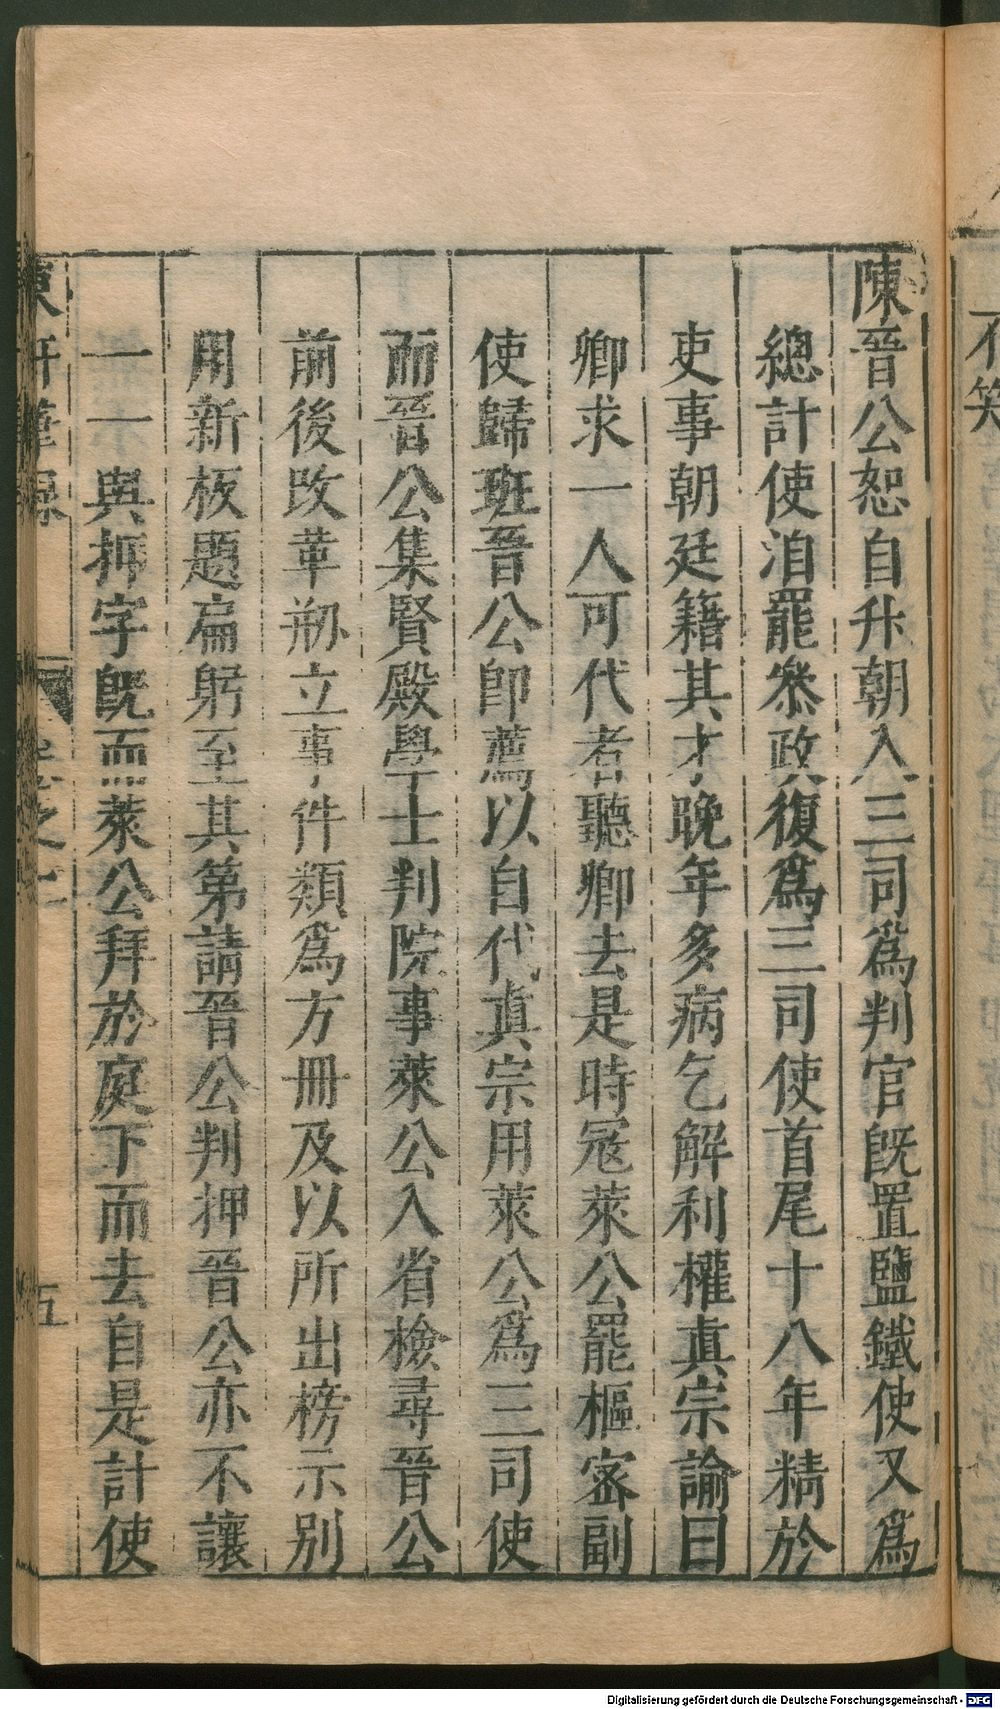 不笑
陳晉公恕自升朝入三司爲判官旣置鹽鐵使又爲
總計使洎罷叅政復爲三司使首尾十八年精於
吏事朝廷籍其才晚年多病乞解利權眞宗諭曰
卿求一人可代者聽卿去是時冦萊公罷樞宻副
使歸班晉公卽薦以自代眞宗用萊公爲三司使
而晉公集賢殿學士判院事萊公入省檢尋晉公
前後改革剏立事件類爲方冊及以所出榜示別
用新板題扁躬至其第請晉公判押晉公亦不讓
一一與押字旣而萊公拜於庭下而去自是計使
東軒筆錄
卷之
五
Digitalisierung gefördert durch die Deutsche Forschungsgemeinschaft - DFG